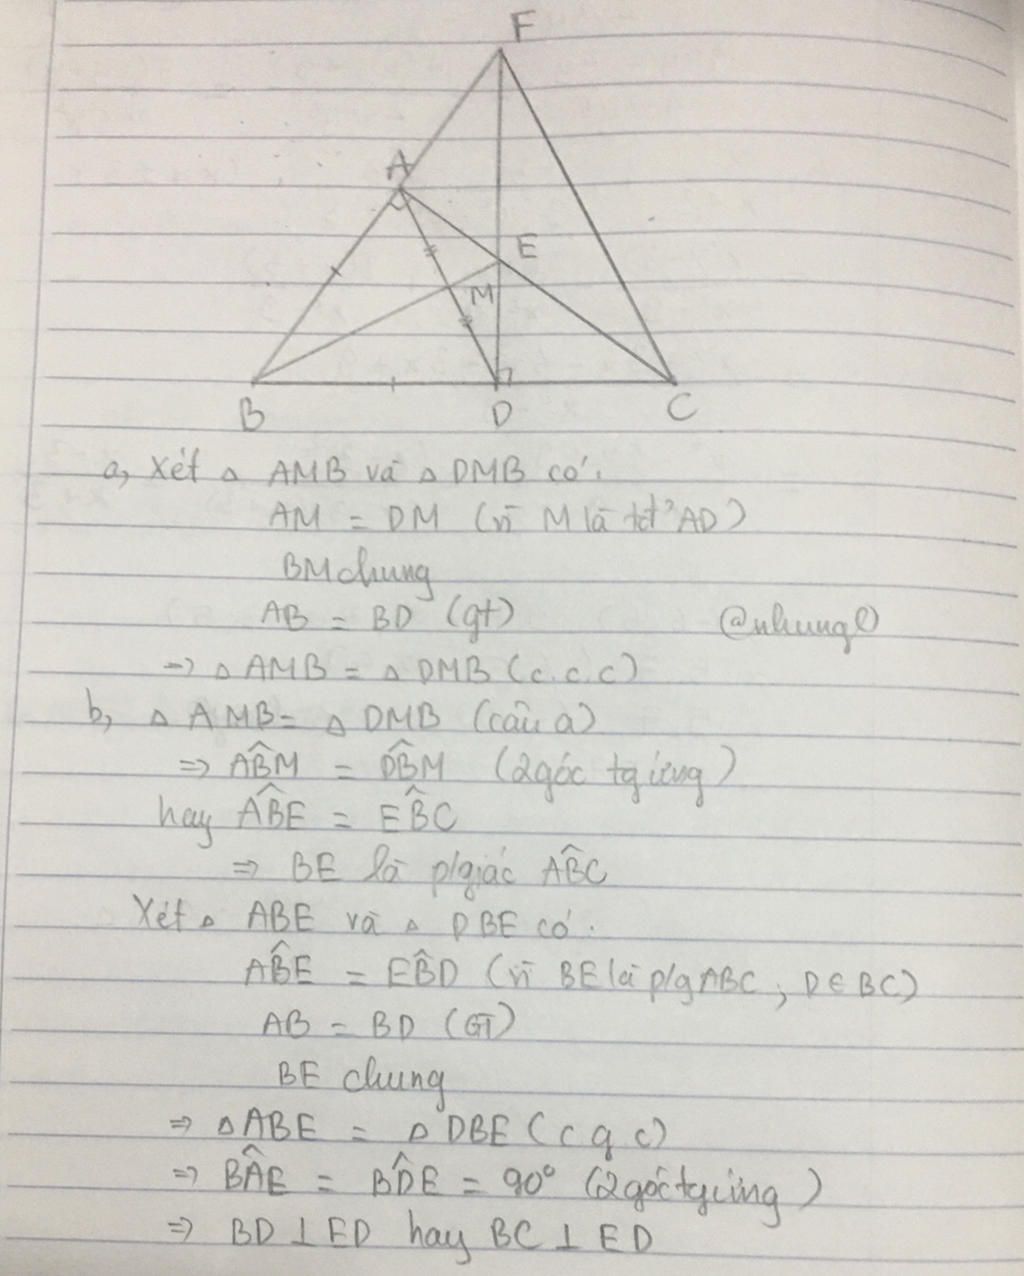 F
A
E
M
B D C
a, Xét △ AMB và △ DMB có:
AM = DM (vì M là tđ' AD)
BM chung
AB = BD (gt)
@nhung
=> △ AMB = △ DMB (c.c.c)
b, △ AMB = △ DMB (câu a)
=> AB̂M = DB̂M (2 góc tg ứng)
hay AB̂E = EB̂C
=> BE là p/giác AB̂C
Xét △ ABE và △ DBE có:
AB̂E = EB̂D (vì BE là p/g ABC, D ∈ BC)
AB = BD (GT)
BE chung
=> △ABE = △ DBE (c g c)
=> BÂE = BD̂E = 90° (2 góc tg ứng)
=> BD ⊥ ED hay BC ⊥ ED